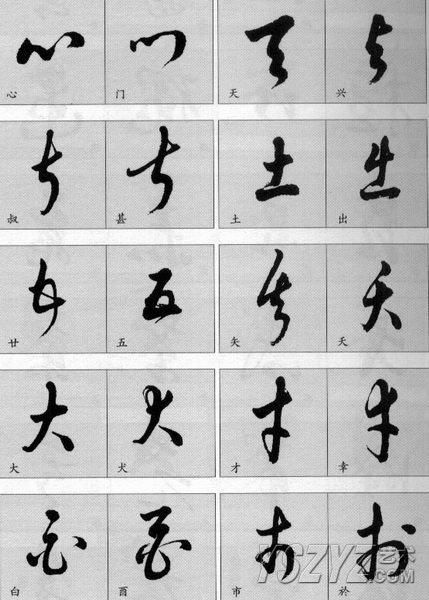 心 门 天 兴
叔 甚 土 出
廿 五 矢 夭
大 犬 才 幸
白 酉 市 於